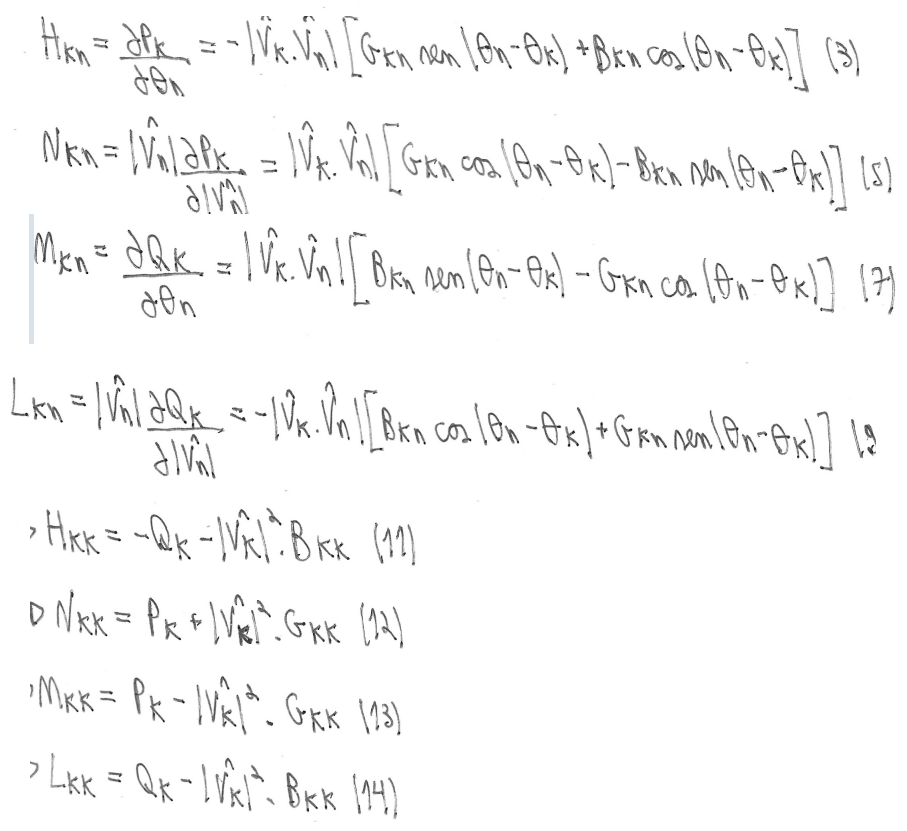 Hkn = ∂Pk/∂θn = -|V̂k.V̂n| [Gkn sen(θn-θk) + Bkn cos(θn-θk)] (3)
Nkn = |V̂n| ∂Pk/∂|V̂n| = |V̂k.V̂n| [Gkn cos(θn-θk) - Bkn sen(θn-θk)] (5)
Mkn = ∂Qk/∂θn = |V̂k.V̂n| [Bkn sen(θn-θk) - Gkn cos(θn-θk)] (7)
Lkn = |V̂n| ∂Qk/∂|V̂n| = -|V̂k.V̂n| [Bkn cos(θn-θk) + Gkn sen(θn-θk)] (9
Hkk = -Qk - |V̂k|². Bkk (11)
Nkk = Pk + |V̂k|². Gkk (12)
Mkk = Pk - |V̂k|². Gkk (13)
Lkk = Qk - |V̂k|². Bkk (14)